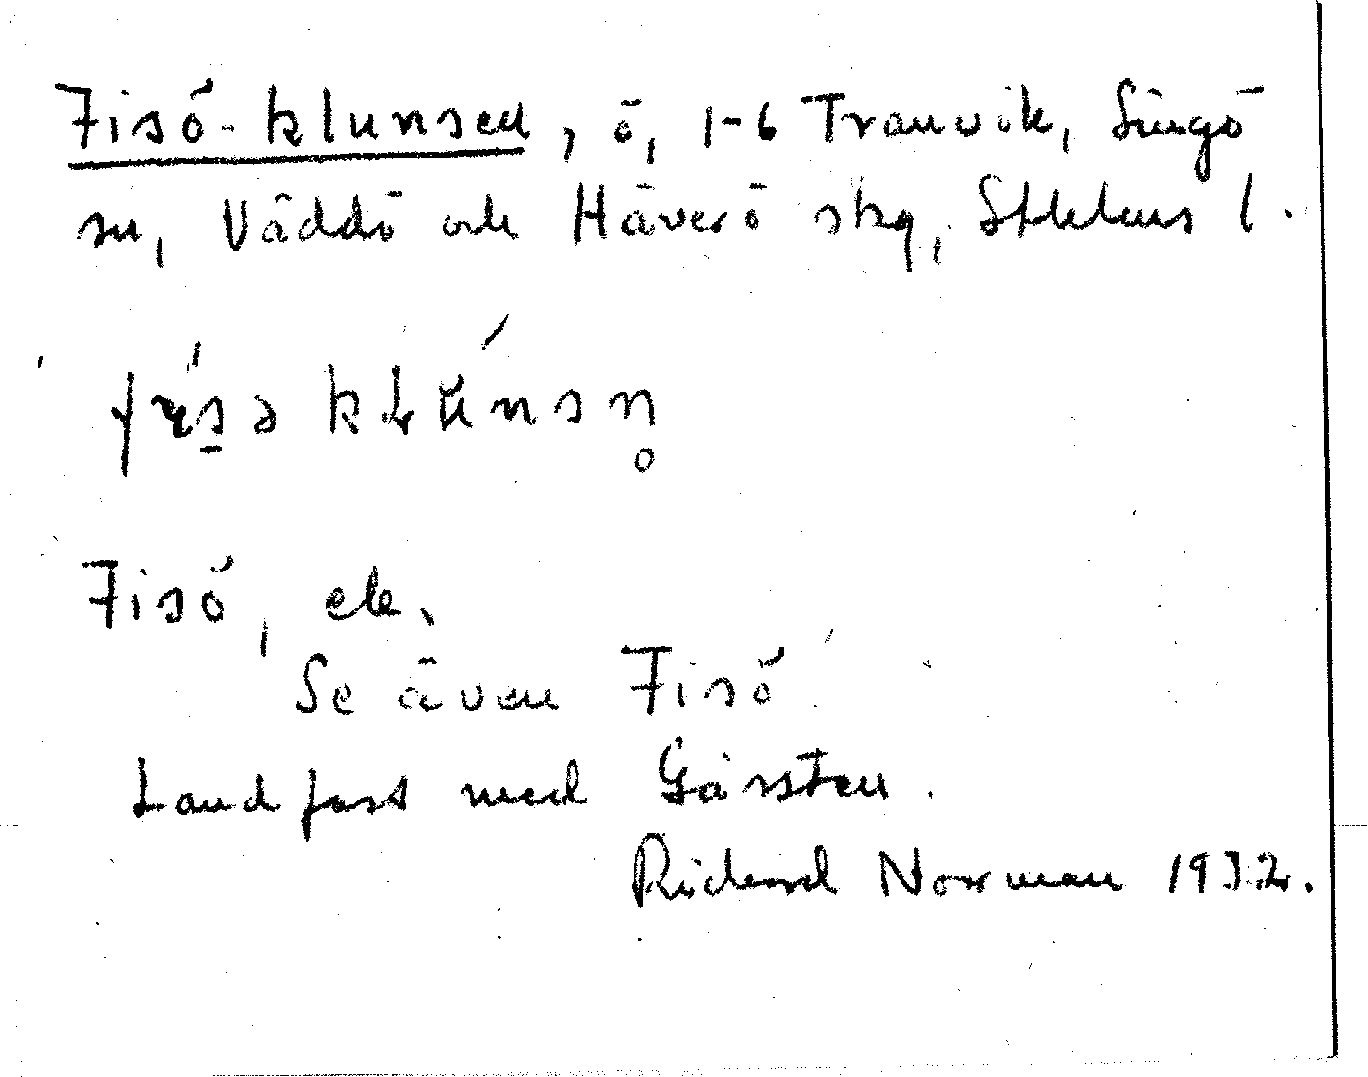 Fisö-klunsen, ö, 1-6 Tranvik, Singö
sn, Väddö och Häverö skg, Sthlms l.
Fisö, ek.
Se även Fisö
Landfast med Gåssten.
Rickard Norman 1932.